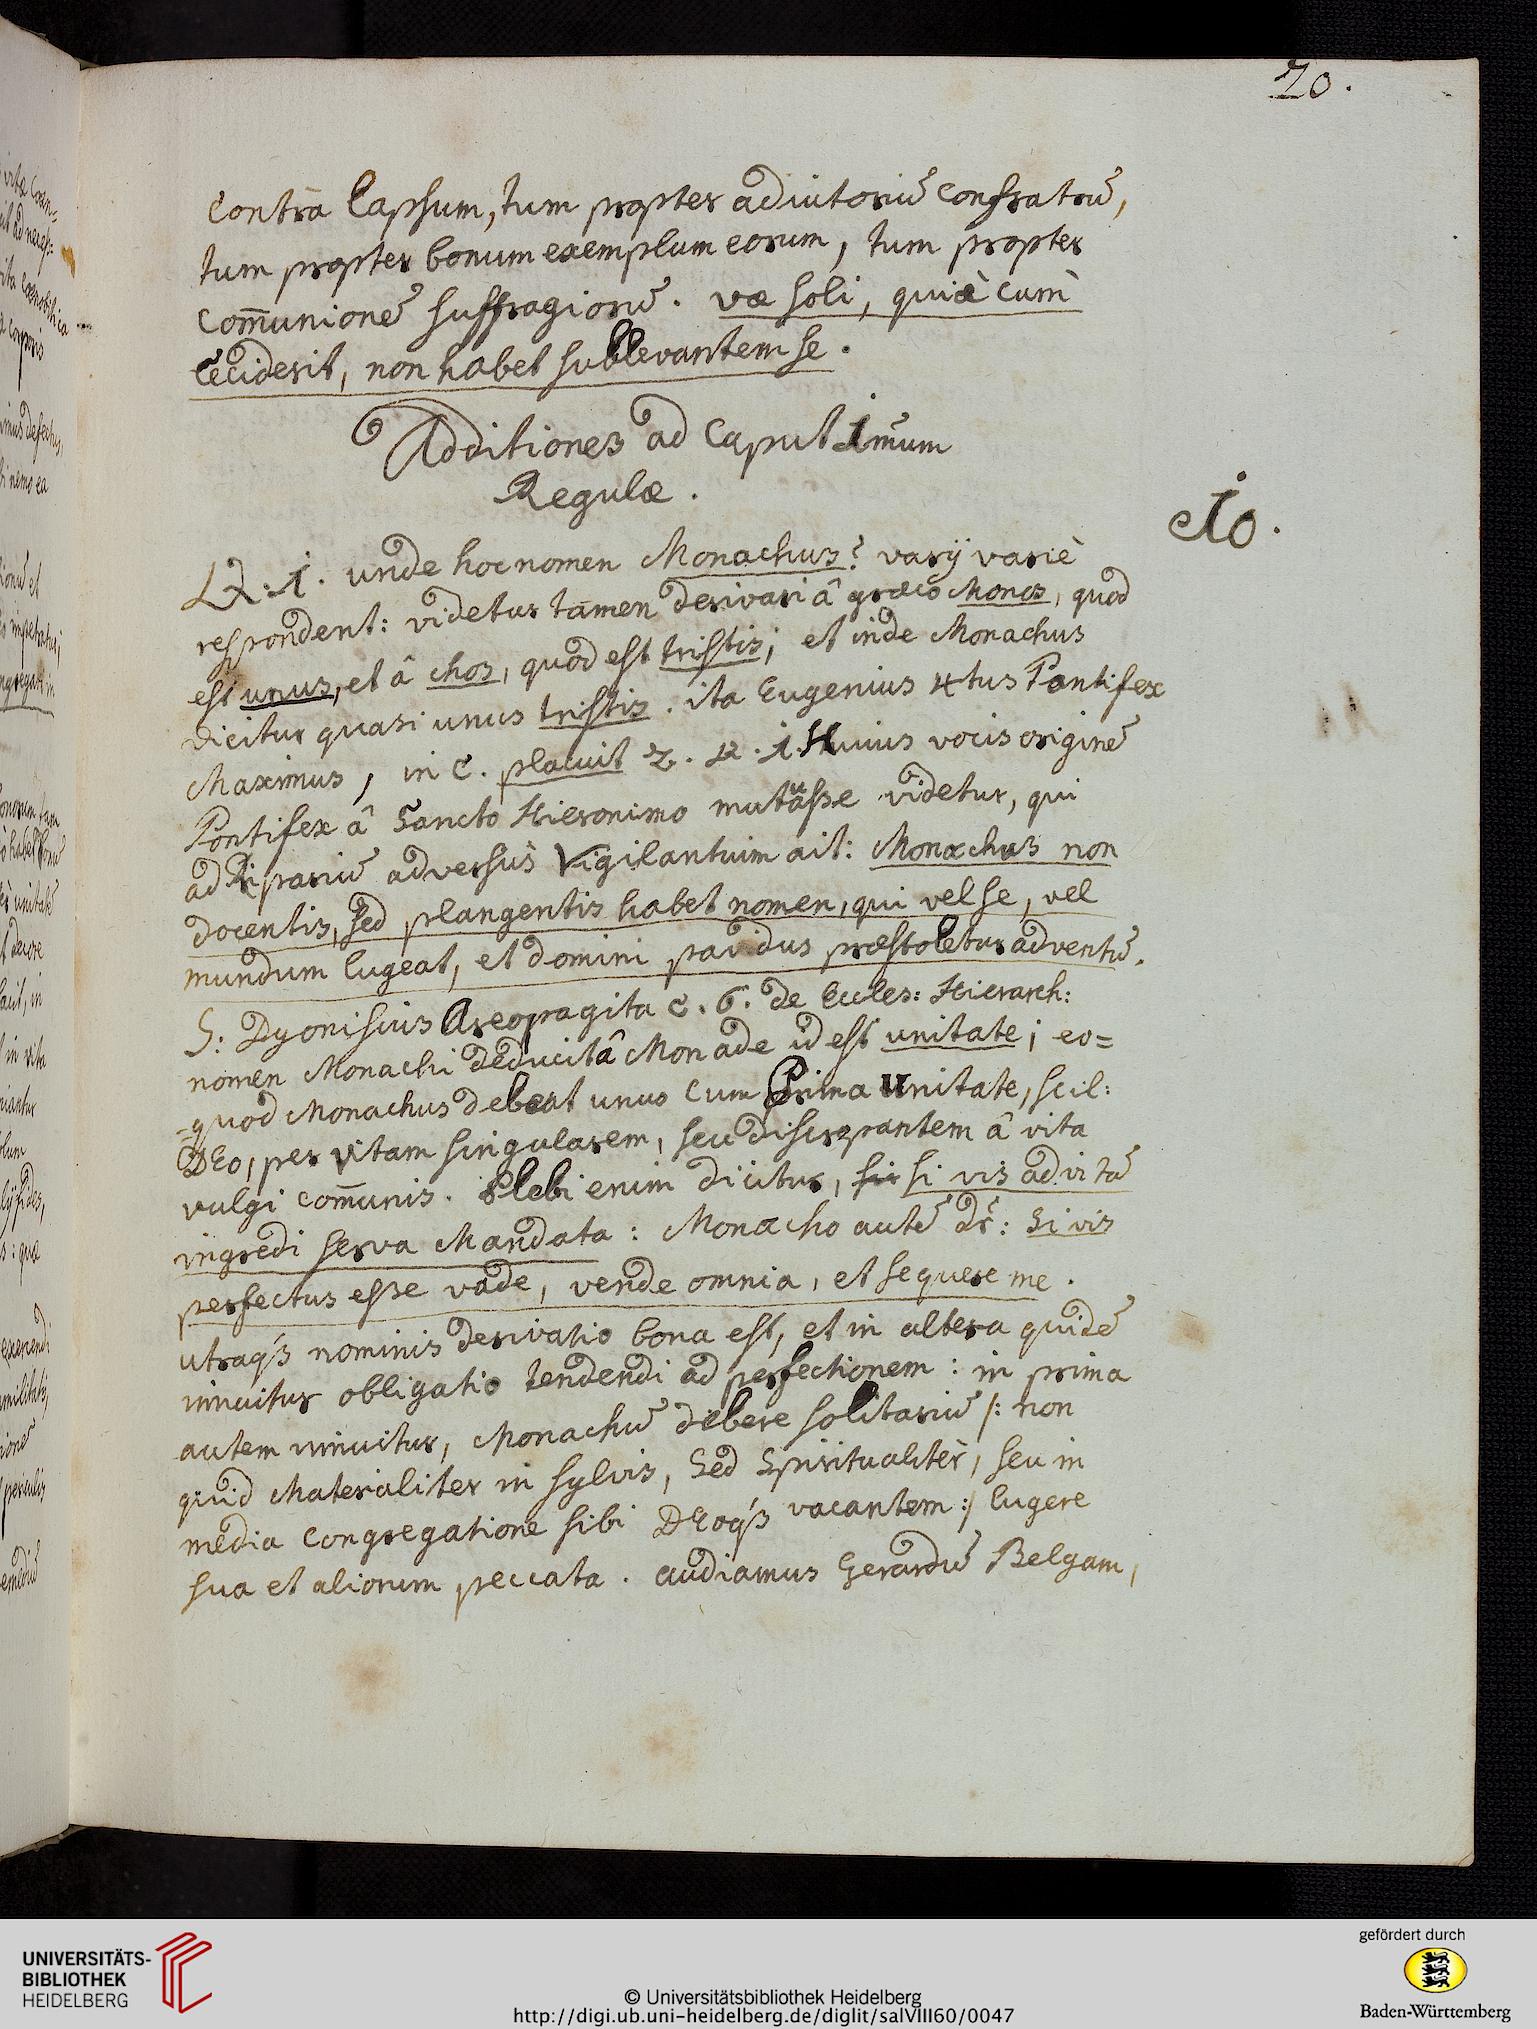 20.
contrà lapsum, tum propter adiutoriũ confratrũ,
tum propter bonum exemplum eorum, tum propter
com̃unionẽ suffragiorũ. væ soli, quià cum
ceciderit, non habet sublevantem se.
Additiones ad Caput 1mum
Regulæ.
10.
Q: 1. unde hoc nomen Monachus? varij variè
respondent: videtur tamen derivari â græco Monos, quod
est unus, et â chos, quod est tristis; et inde Monachus
dicitur quasi unus tristis. ita Eugenius 4tus Pontifex
Maximus, in c. placuit 2. q. 1. Huius vocis originẽ
Pontifex â Sancto Hieronimo mutuasse videtur, qui
ad Ripariũ adversus Vigilantium ait: Monachus non
docentis, sed plangentis habet nomen, qui vel se, vel
mundum lugeat, et domini pavidus præstoletur adventũ.
S: Dyonisius Areopagita c. 6. de Eccles: Hierarch:
nomen Monachi deducit â Monade id est unitate; eo=
-quod Monachus debeat unus cum Prima Unitate, scil:
DEo, per vitam singularem, seu discrepantem â vita
vulgi com̃unis. Plebi enim dicitur, si vis ad vitã
ingredi serva Mandata: Monacho autẽ dr̃: Si vis
perfectus esse vade, vende omnia, et sequere me.
utraq́3 nominis derivatio bona est, et in altera quidẽ
innuitur obligatio tendendi ad perfectionem: in prima
autem innuitur, Monachũ debere solitariũ /: non
quid Materialiter in sylvis, Sed Spiritualitèr, seu in
media Congregatione sibi DEoq́3 vacantem :/ lugere
sua et aliorum peccata. audiamus Gerardũ Belgam,
UNIVERSITÄTS-
BIBLIOTHEK
HEIDELBERG
© Universitätsbibliothek Heidelberg
http://digi.ub.uni-heidelberg.de/diglit/salVIII60/0047
gefördert durch
Baden-Württemberg